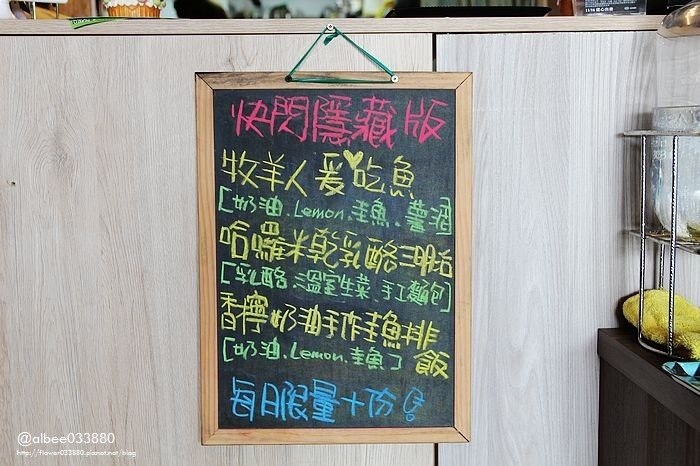 快閃隱藏版
牧羊人爱吃魚
[奶油.Lemon.鮭魚.薯泥]
哈囉米乾乳酪三明治
[乳酪.溫室生菜.手工麵包]
香檸奶油手作鮭魚排飯
[奶油.Lemon.鮭魚]
每日限量十份
@albee033880
http://flower033880.pixnet.net/blog